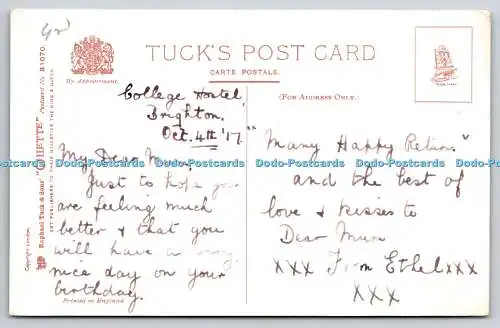 42
TUCK'S POST CARD
CARTE POSTALE.
By Appointment.
(For Address Only.)
College Hostel,
Brighton.
Oct. 4th '17.
My Dear
Just to hope you
are feeling much
better & that you
will have a very
nice day on your
birthday.
"Many Happy Returns"
and the best of
love & kisses to
Dear Mum
XXX From Ethel XXX
XXX
Printed in England
Copyright
Raphael Tuck & Sons' "OILETTE" Postcard No. B1070.
ART PUBLISHERS TO THEIR MAJESTIES THE KING & QUEEN.
Dodo-Postcards Dodo-Postcards Dodo-Postcards Dodo-Postcards Dodo-Postcards